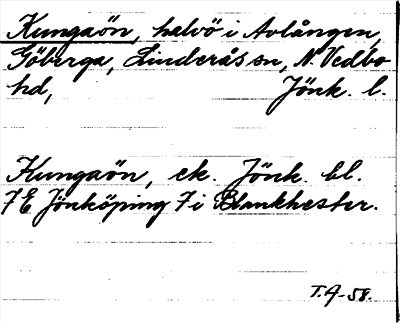 Kungaön, halvö i Avlången,
Göberga, Linderås sn, N. Vedbo
hd, Jönk. l.
Kungaön, ek. Jönk. bl.
7E Jönköping 7i Blankhester.
T.A-58.